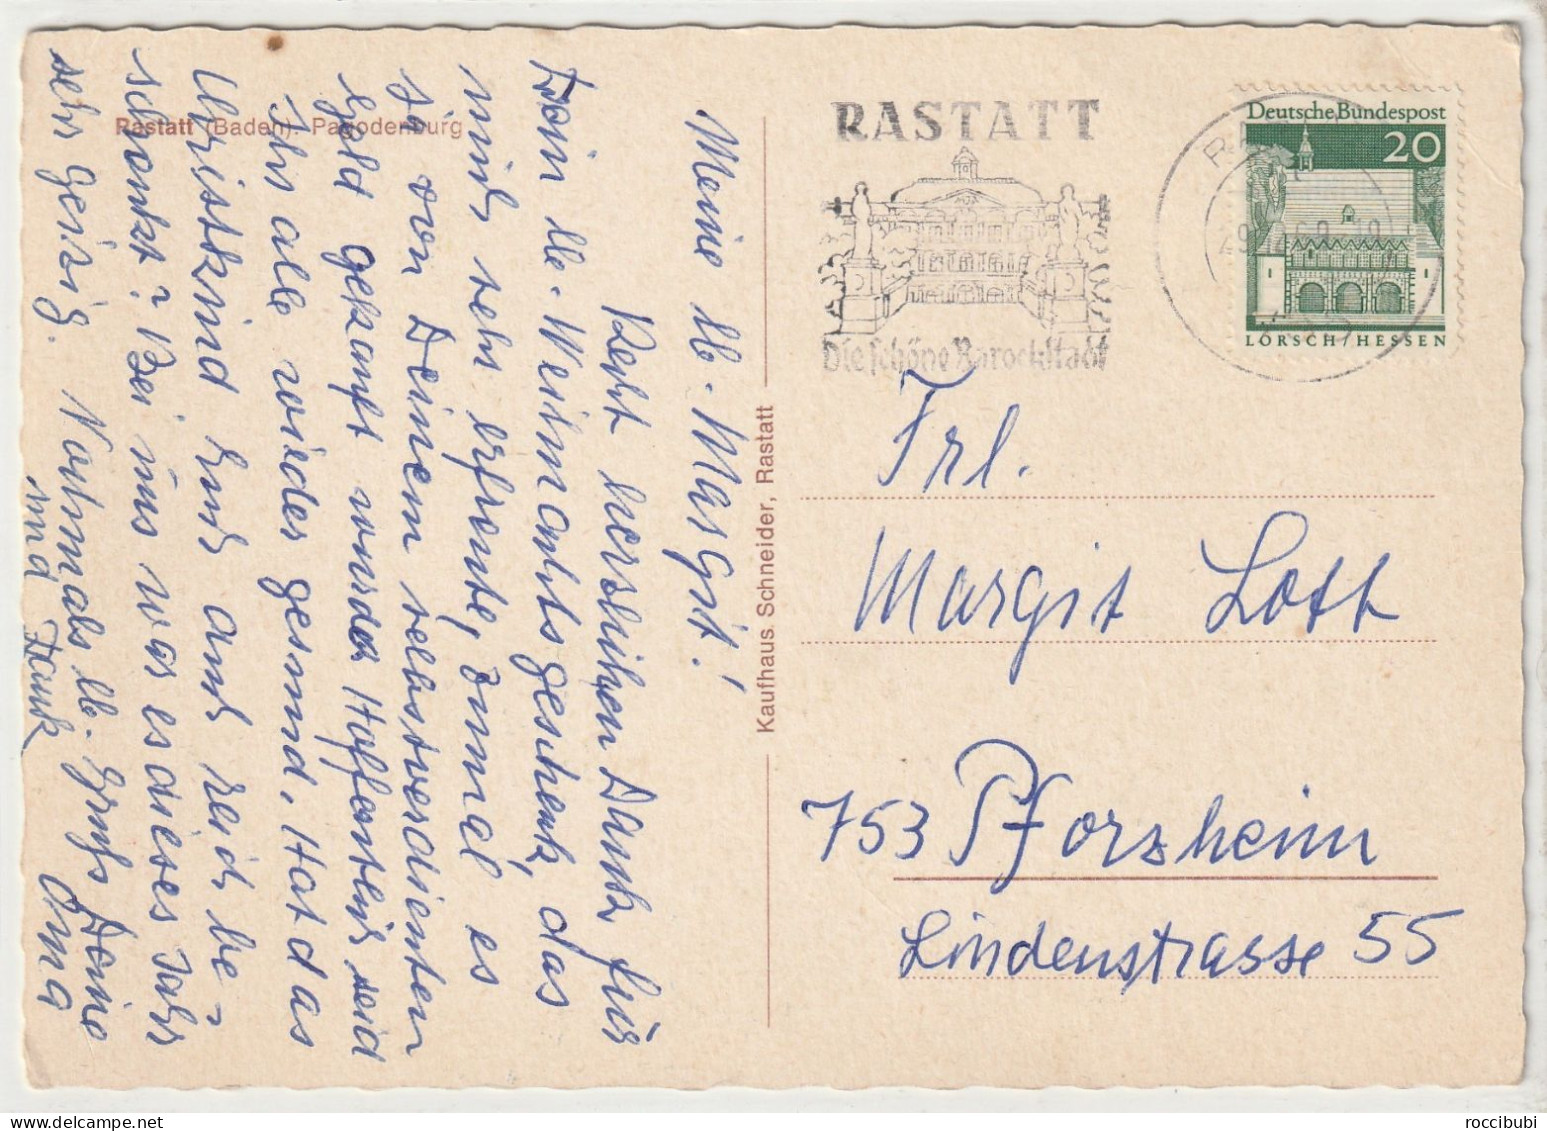 Rastatt (Baden). Pagodenburg
Meine lb. Margit!
Recht herzlichen Dank für
Dein lb. Weihnachtsgeschenk, das
mich sehr erfreute, zumal es
ja von Deinem selbstverdienten
Geld gekauft wurde. Hoffentlich seid
Ihr alle wieder gesund. Hat das
Christkind Euch auch reich be-
schenkt? Bei uns war es dieses Jahr
sehr geizig. Nochmals lb. Grüße Deine
und Dank Oma
Kaufhaus Schneider, Rastatt
RASTATT
Die schöne Barockstadt
Deutsche Bundespost
20
LORSCH/HESSEN
Frl.
Margit Lott
753 Pforzheim
Lindenstrasse 55
roccibubi